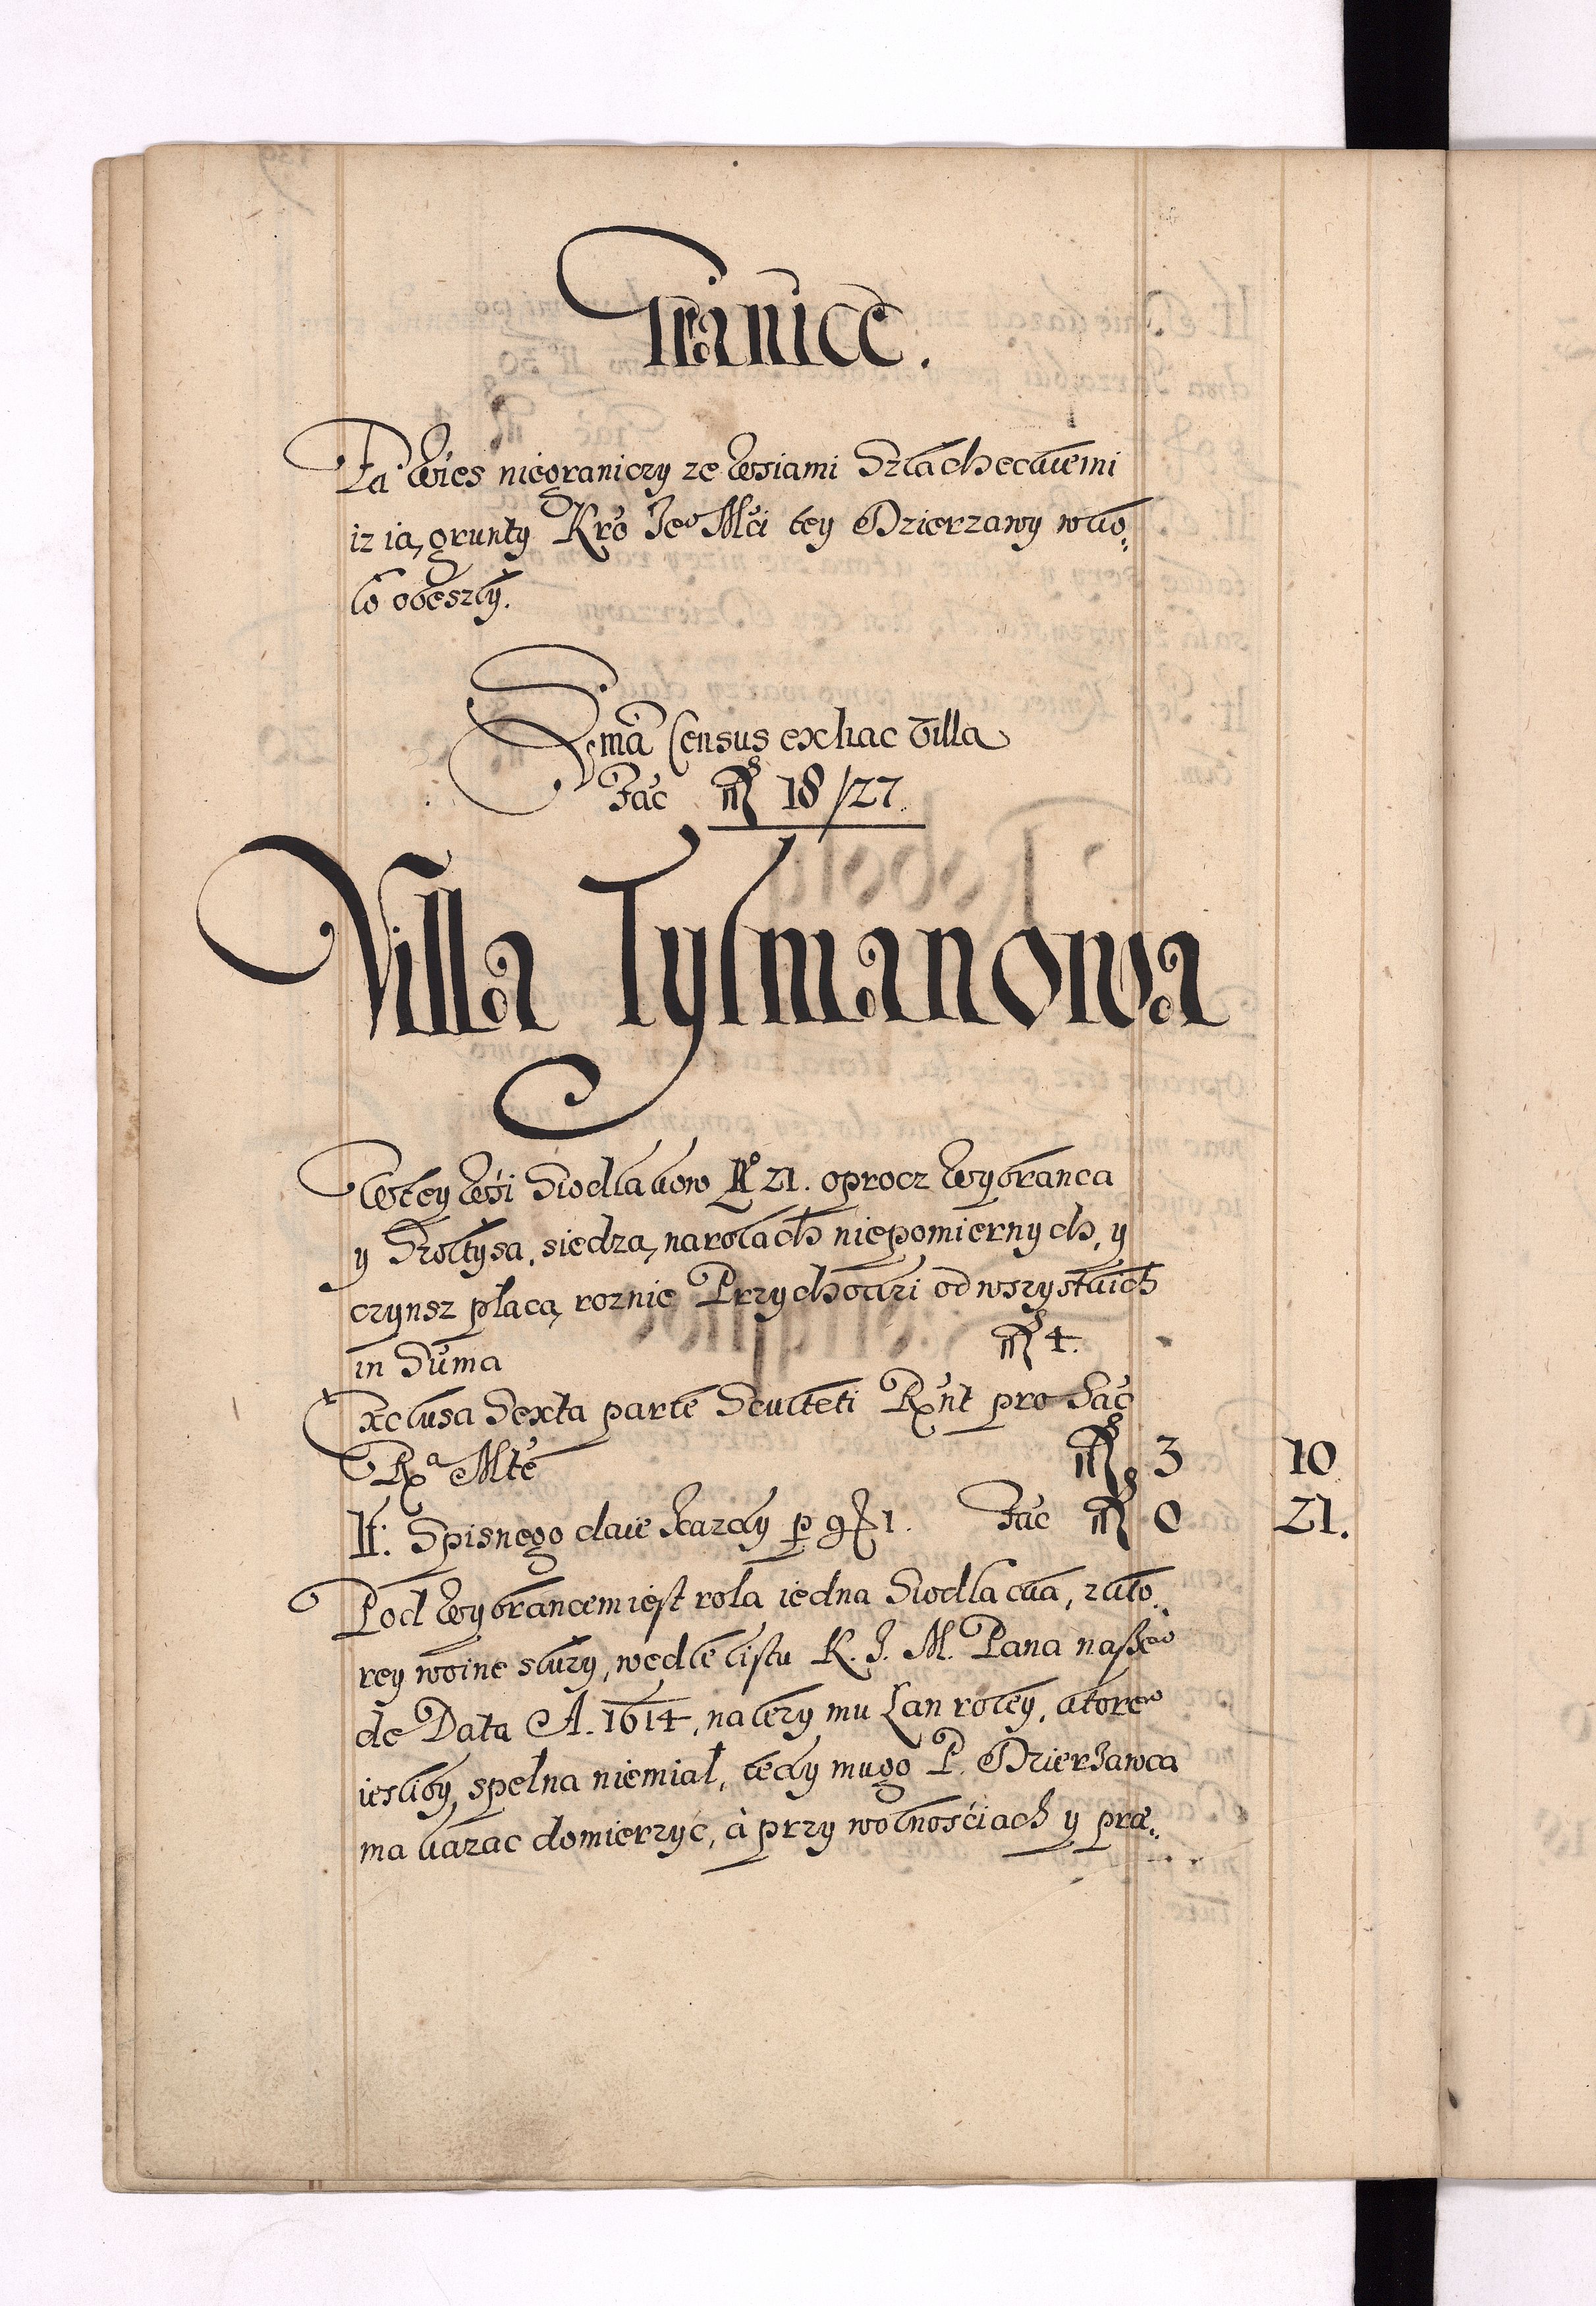 Granice.
Ta Wies niegraniczy ze Wsiami Szlacheckiemi
iz ią, grunty Kro Je° Mći tey Dzierzawy wko„
ło obeszły.
Suma Census ex hac Villa
Fac 18/27
Villa Tylmanowa
W tey Wsi Siodlakow N° 21. oprocz Wybranca
y Szołtysa, siedzą, na rolach niepomiernych, y
czynsz płacą, roznie Przychodzi od wszystkich
in Suma 4.
Exclusa Sexta parte Sculteti Rnt pro Sac
Ra Mte 3 10
It: Spisnego daie kazdy p gr 1. Fac 0 21.
Pod Wybrancem iest rola iedna Siodlacka, z kto„
rey woine słuzy, wedle listu K. J. M. Pana nasze°
de Data A. 1614, nalezy mu Łan roley, ktore°
iesliby, spełna niemiał, tedy mu go P. Dzierzawca
ma kazac domierzyć, à przy wolnościach y præ„